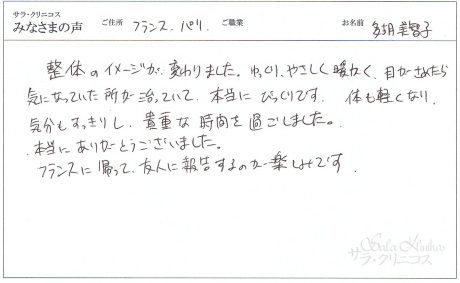 サラ・クリニコス
みなさまの声 ご住所 フランス、パリ. ご職業 お名前 多胡 美智子
整体のイメージが変わりました。ゆっくり、やさしく暖かく、目がさめたら
気になっていた所が治っていて、本当にびっくりです。体も軽くなり、
気分もすっきりし、貴重な時間を過ごしました。
本当にありがとうございました。
フランスに帰って、友人に報告するのが楽しみです.
Sala Klinikos
サラ・クリニコス